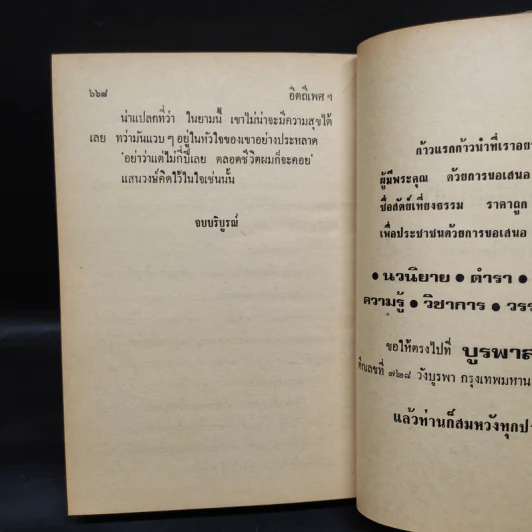 ๖๖๘
อิตถีเพศ ฯ
น่าแปลกที่ว่า ในยามนี้ เขาไม่น่าจะมีความสุขได้
เลย ทว่ามันแวบ ๆ อยู่ในหัวใจของเขาอย่างประหลาด
'อย่าว่าแต่ไม่กี่ปีเลย ตลอดชีวิตผมก็จะคอย'
แสนวงษ์คิดไว้ในใจเช่นนั้น
จบบริบูรณ์
ก้าวแรกก้าวนำที่เราอย
ผู้มีพระคุณ ด้วยการขอเสนอ
ซื่อสัตย์เที่ยงธรรม ราคาถูก
เพื่อประชาชนด้วยการขอเสนอ
● นวนิยาย ● ตำรา ●
ความรู้ ● วิชาการ ● วรร
ขอให้ตรงไปที่ บูรพาส
ตึกเลขที่ ๗๒๘ วังบูรพา กรุงเทพมหาน
แล้วท่านก็สมหวังทุกป